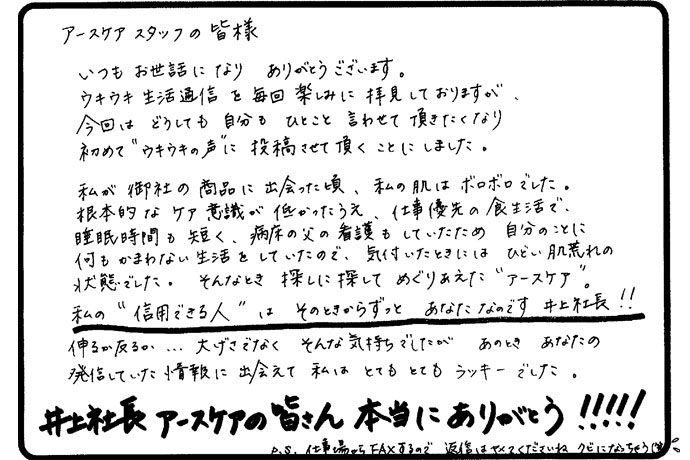 アースケア スタッフの 皆様
いつも お世話に なり ありがとうございます。
ウキウキ 生活通信 を 毎回 楽しみに 拝見しておりますが、
今回は どうしても 自分も ひとこと 言わせて 頂きたくなり
初めて "ウキウキの声" に 投稿させて頂く ことに しました。
私が 御社の 商品に 出会った頃、私の肌は ボロボロでした。
根本的な ケア 意識が 低かったうえ、仕事優先の 食生活で、
睡眠時間も 短く、病床の父の看護も していたため 自分のことに
何も かまわない 生活を していたので、気付いたときには ひどい 肌荒れの
状態でした。 そんなとき 探しに 探して めぐりあえた "アースケア"。
私の "信用できる人" は そのときからずっと あなたなのです 井上社長!!
伸るか反るか… 大げさでなく そんな気持ちでしたが あのとき あなたの
発信していた 情報に 出会えて 私は とても とても ラッキーでした。
井上社長 アースケアの 皆さん 本当に ありがとう!!!!!
P.S. 仕事場から FAXするので 返信は やめてくださいね クビになっちゃう